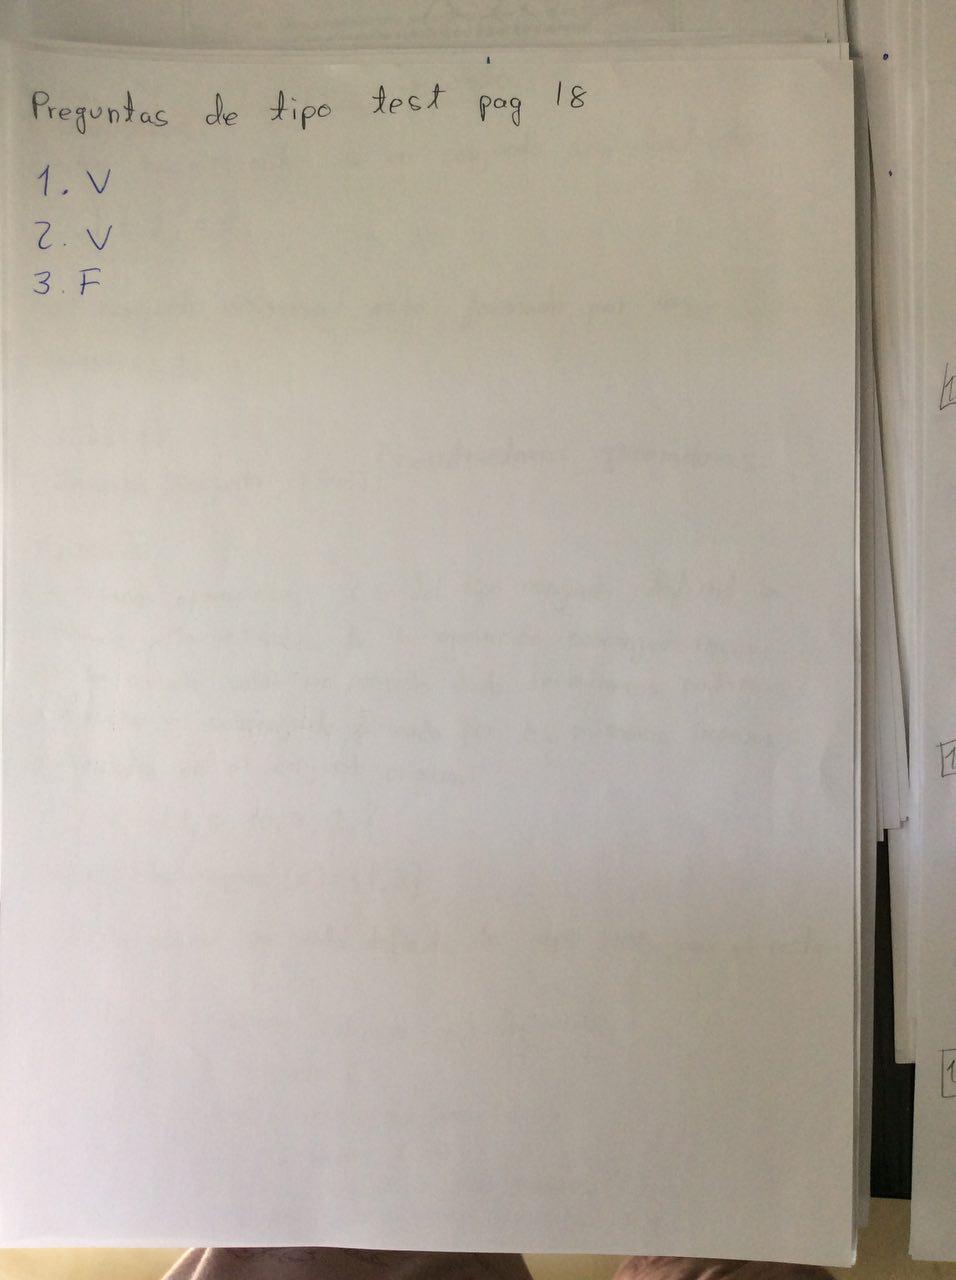 Preguntas de tipo test pag 18
1. V
2. V
3. F